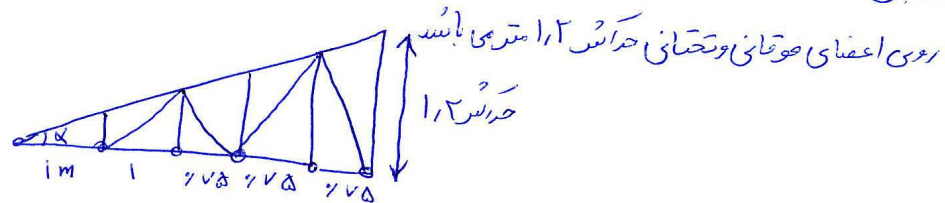 روی اعضای فوقانی وتحتانی حداکثر ۱٫۲ متر می باشد
حداکثر ۱٫۲
α
1m 1 ٪۷۵ ٪۷۵ ٪۷۵